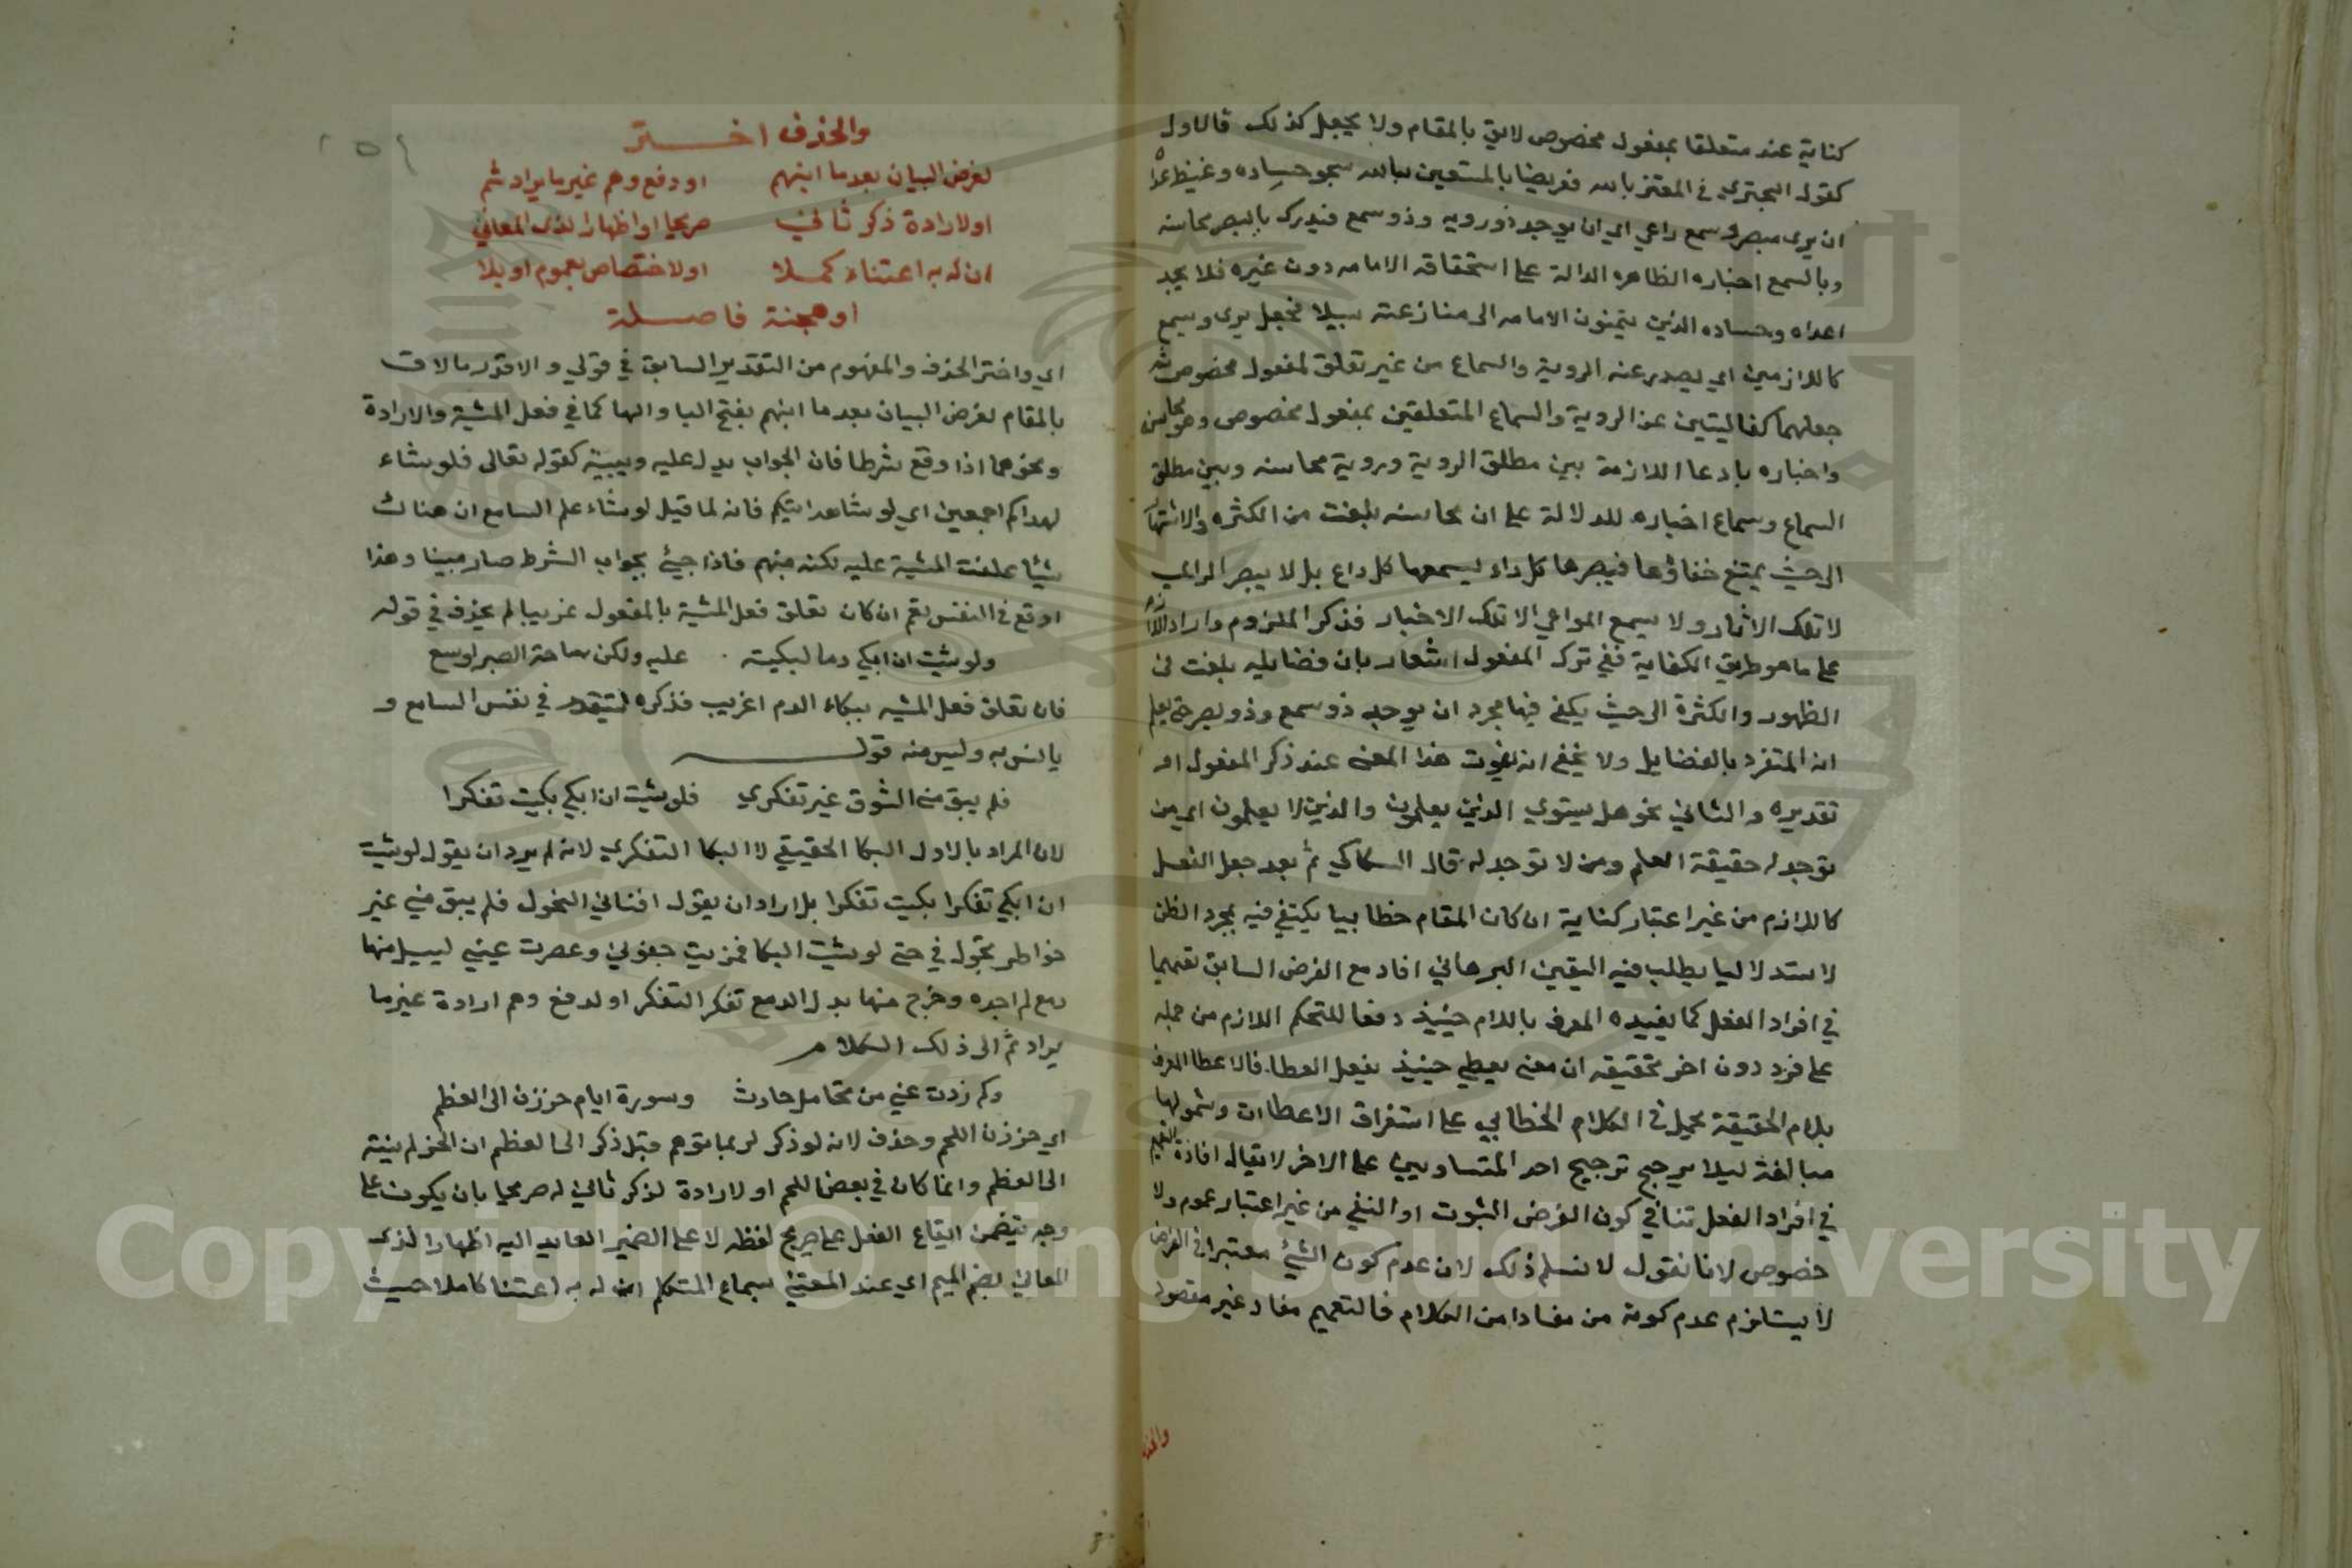 كناية عنه متعلقا بمفعول مخصوص لايق بالمقام ولا يجعل كذلك فالاول
كقول البحتري في المعتز بالله تعريضا بالمستعين بالله شجو حساده وغيظ عداه
ان يرى مبصر ويسمع واعي اي ان يوجد ذو روية وذو سمع فيدرك بالبصر محاسنه
وبالسمع اخباره الظاهره الدالة على استحقاقه الامامه دون غيره فلا يجد
اعداه وحساده الذين يتمنون الامامه الى منازعته سبيلا فجعل يرى ويسمع
كاللازمين اي يصدر عنه الروية والسماع من غير تعلق لمفعول مخصوص ثم
جعلهما كنايتين عن الروية والسماع المتعلقين بمفعول مخصوص وهو محاسن
واخباره بادعا اللازمة بين مطلق الروية وروية محاسنه وبين مطلق
السماع وسماع اخباره للدلالة على ان محاسنه بلغت من الكثره والاشتهار
الى حيث يمتنع خفاؤها فيبصرها كل راء ليسمعها كل داع بل لا يبصر الرائي
لا تلك الاثار ولا يسمع الواعي الا تلك الاخبار فذكر الملزوم واراد اللازم
على ما هو طريق الكناية ففي ترك المفعول اشعار بان فضايله بلغت في
الظهور والكثرة الى حيث يكفي فيها مجرد ان يوجد ذو سمع وذو بصر حتى يعلم
انه المتفرد بالفضايل ولا يخفى انه يفوت هذا المعنى عند ذكر المفعول او
تقديره والثاني نحو هل يستوي الذين يعلمون والذين لا يعلمون اي من
توجد له حقيقة العلم ومن لا توجد له قال السكاكي ثم بعد جعل الفعل
كاللازم من غير اعتبار كناية ان كان المقام خطابيا يكتفي فيه بمجرد الظن
لا استدلاليا يطلب فيه اليقين البرهاني افاد مع الغرض السابق تعميما
في افراد الفعل كما يفيده المعرف باللام حينيذ دفعا للتحكم اللازم من حمله
على فرد دون اخر تحقيقه ان معنى يعطي حينيذ يفعل العطا فالاعطا المعرف
بلام الحقيقة يحمل في الكلام الخطابي على استغراق الاعطاات وشمولها
مبالغة ليلا يرجح ترجيح احد المتساويين على الاخر لا يقال افادة التعميم
في افراد الفعل تنافي كون الغرض الثبوت او النفي من غير اعتبار عموم ولا
خصوص لانا نقول لا نسلم ذلك لان عدم كون الشئ معتبرا في الغرض
لا يستلزم عدم كونه من مفادا من الكلام فالتعميم مفاد غير مقصود
والحذف اختر
لغرض البيان بعد ما ابهم او دفع وهم غير ما يراد ثم
او لارادة ذكر ثاني صريحا او اظهارا لذى المعاني
ان له به اعتناء كملا او لاختصاص بعموم او بلا
او هجنة فاصلة
اي واختر الحذف والمفهوم من التقدير السابق في قولي والا قدر ما لاق
بالمقام لغرض البيان بعد ما ابهم بفتح اليا والها كما في فعل المشية والارادة
ونحوهما اذا وقع شرطا فان الجواب يدل عليه ويبينه كقوله تعالى فلو شاء
لهداكم اجمعين اي لو شاء هدايتكم فانه لما قيل لو شاء علم السامع ان هناك
شيئا علقت المشية عليه لكنه مبهم فاذا جيئ بجواب الشرط صار مبينا وهذا
اوقع في النفس نعم ان كان تعلق فعل المشية بالمفعول غريبا لم يحذف في قوله
ولو شيت ان ابكي دما لبكيته عليه ولكن ساحة الصبر اوسع
فان تعلق فعل المشيه ببكاء الدم اغريب فذكره ليتقرر في نفس السامع و
يانس به وليس منه قول
فلم يبق مني الشوق غير تفكري فلو شيت ان ابكي بكيت تفكرا
لان المراد بالاول البكا الحقيقي لا البكا التفكري لانه لم يرد ان يقول لو شيت
ان ابكي تفكرا بكيت تفكرا بل اراد ان يقول افناني النحول فلم يبق مني غير
خواطر تجول في حتى لو شيت البكا فمريت جفوني وعصرت عيني ليسيل منها
دمع لم اجده وخرج منها بدل الدمع تفكر التفكر او لدفع وهم ارادة غير ما
يراد ثم الى ذلك الكلام
وكم زدت عني من تحامل حادث وسورة ايام حززن الى العظم
اي حززن اللحم وحذف لانه لو ذكر لربما توهم قبل ذكر الى العظم ان الحز لم ينته
الى العظم وانما كان في بعض اللحم او لارادة لذكر ثاني له صريحا بان يكون على
وجه يتضمن ايقاع الفعل على صريح لفظه لا على الضمير العايد اليه اظهارا لذى
المعاني بضم الميم اي عند المعتني بسماع المتكلم ان له به اعتنا كاملا حيث
Copyright © King Saud University